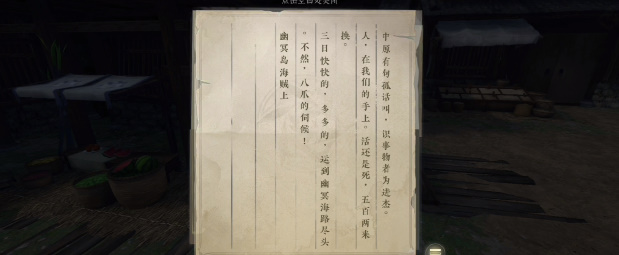 点击空白处关闭
中原有句孤话叫，识事物者为进杰。
人，在我们的手上。活还是死，五百两来
换。
三日快快的，多多的，运到幽冥海路尽头
。不然，八爪的伺候！
幽冥岛海贼上